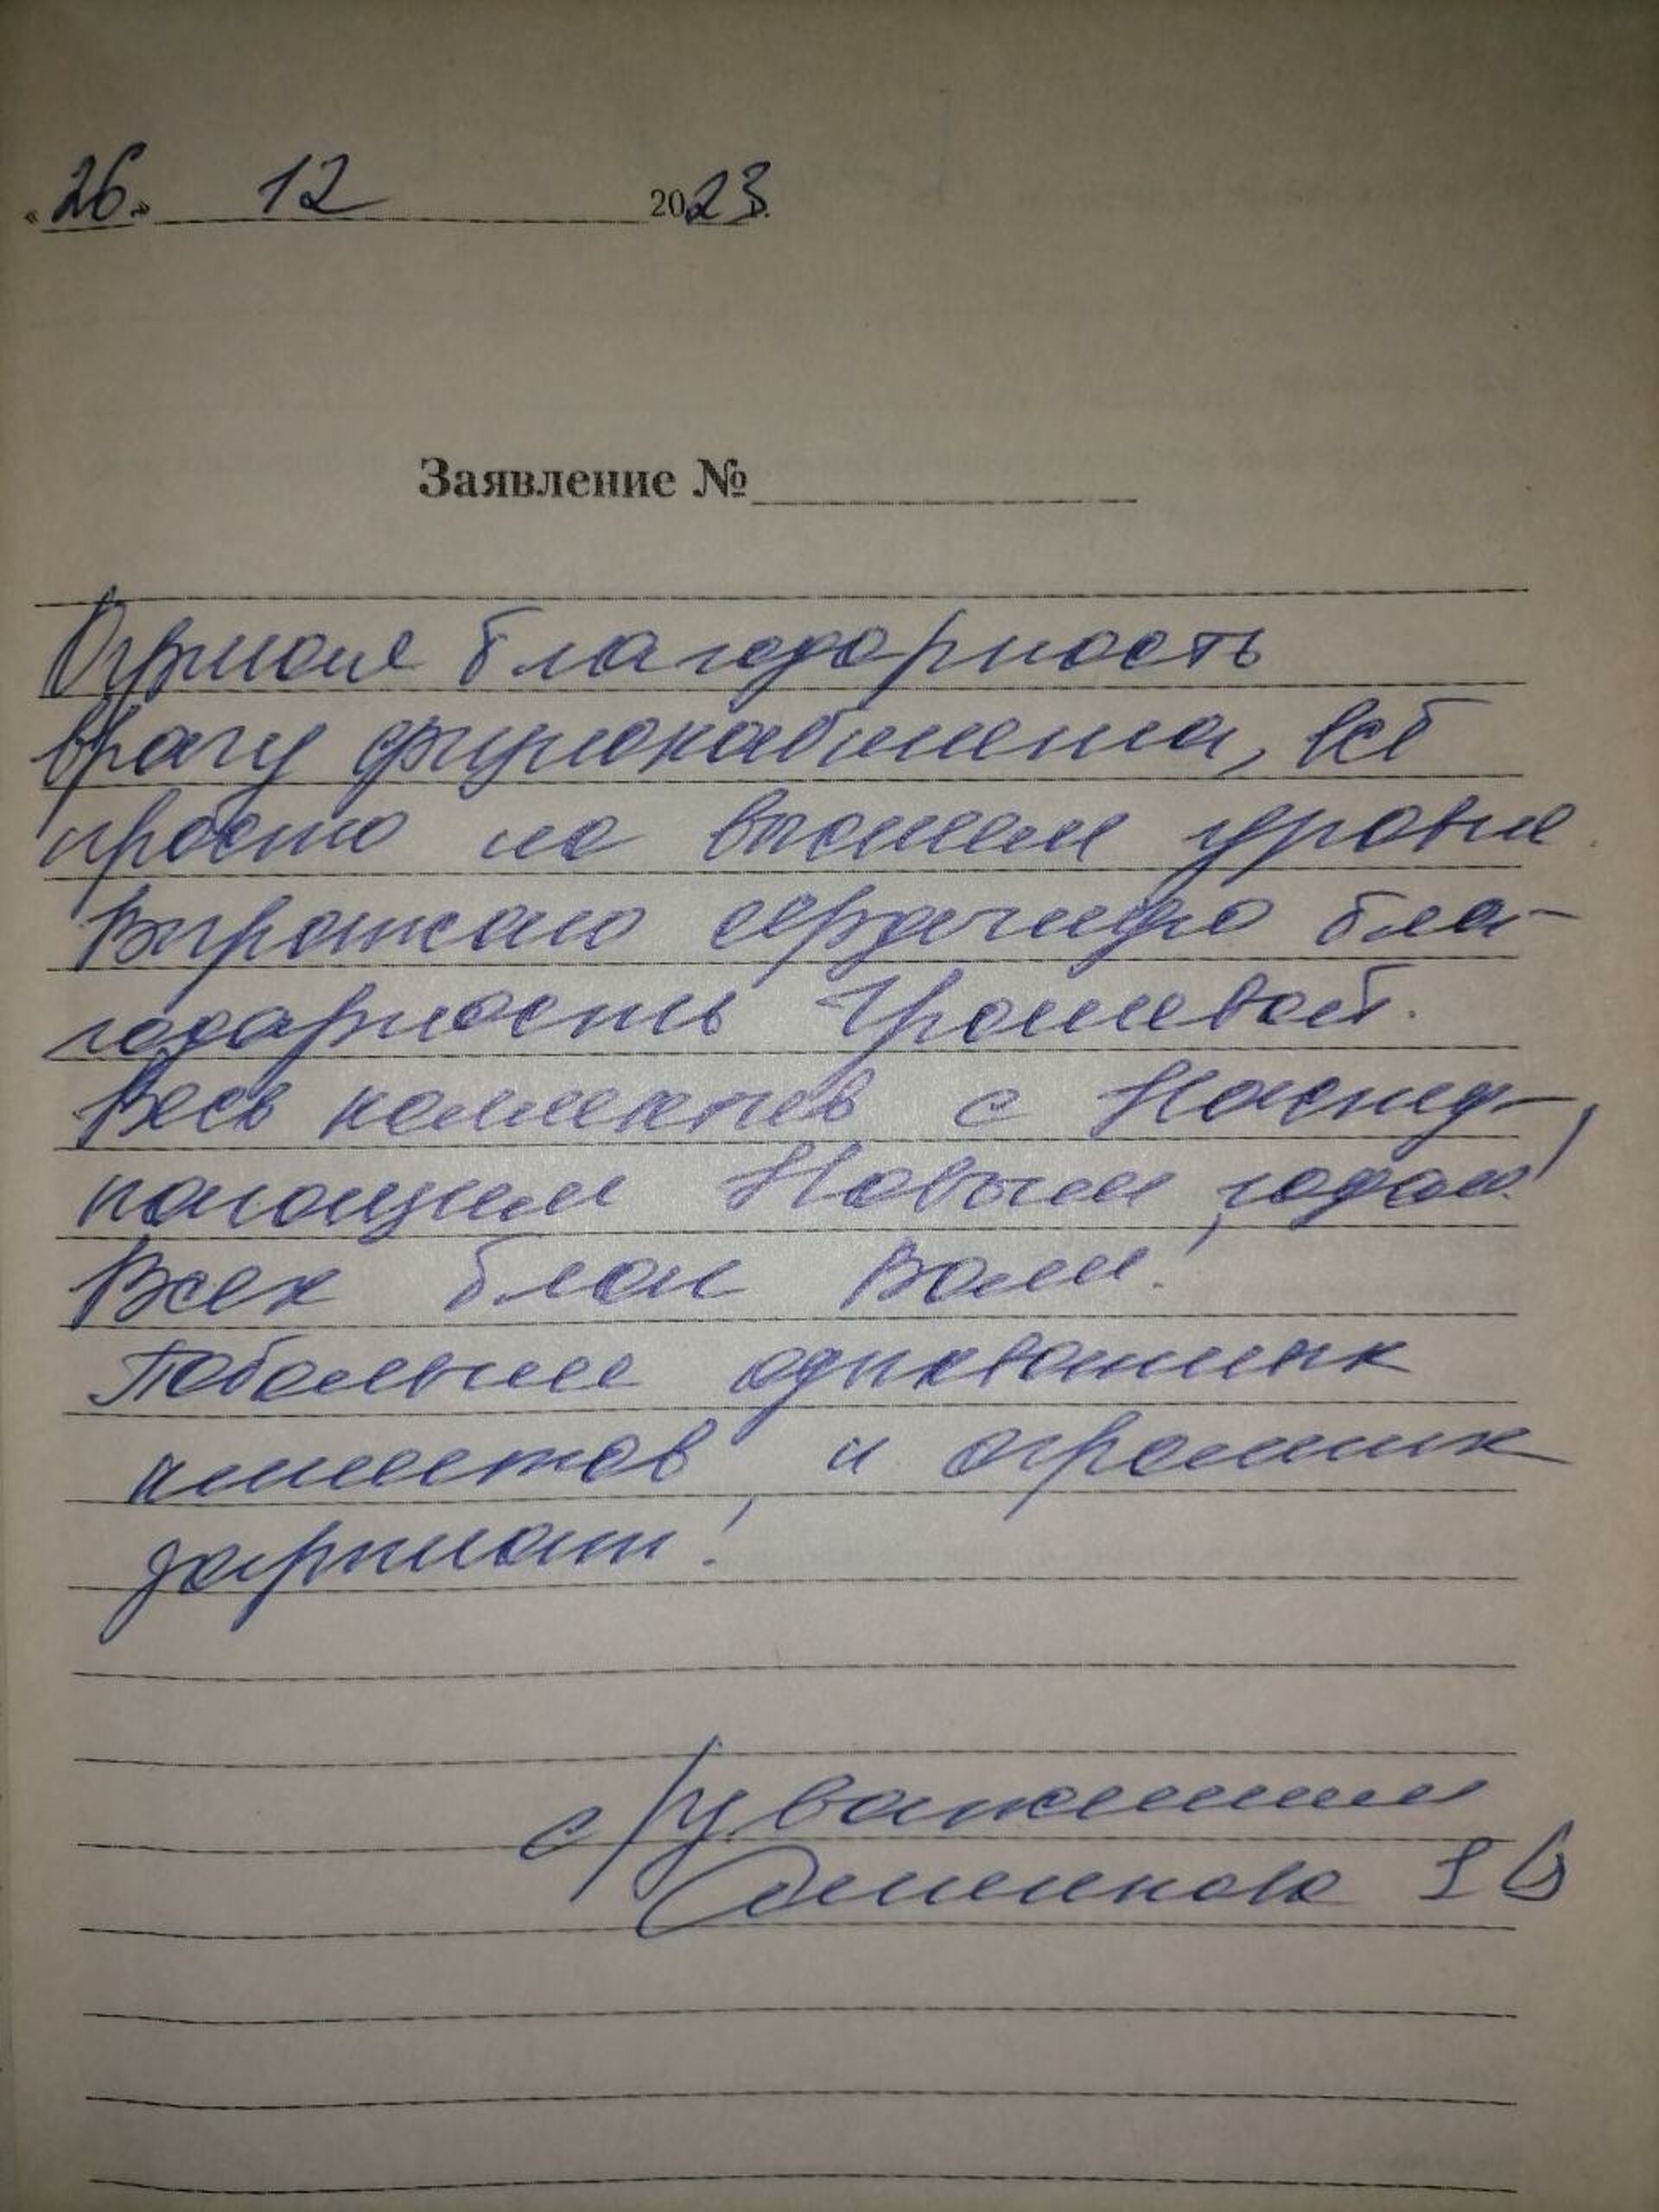 «26» 12 2023
Заявление №
Огромная благодарность
врачу физиокабинета, всё
просто на высшем уровне
Выражаю сердечную бла-
годарность Ярошевой.
Весь коллектив с Насту-
пающим Новым годом!
Всех благ Вам!
Побольше адекватных
клиентов, и огромных
зарплат!
с уважением